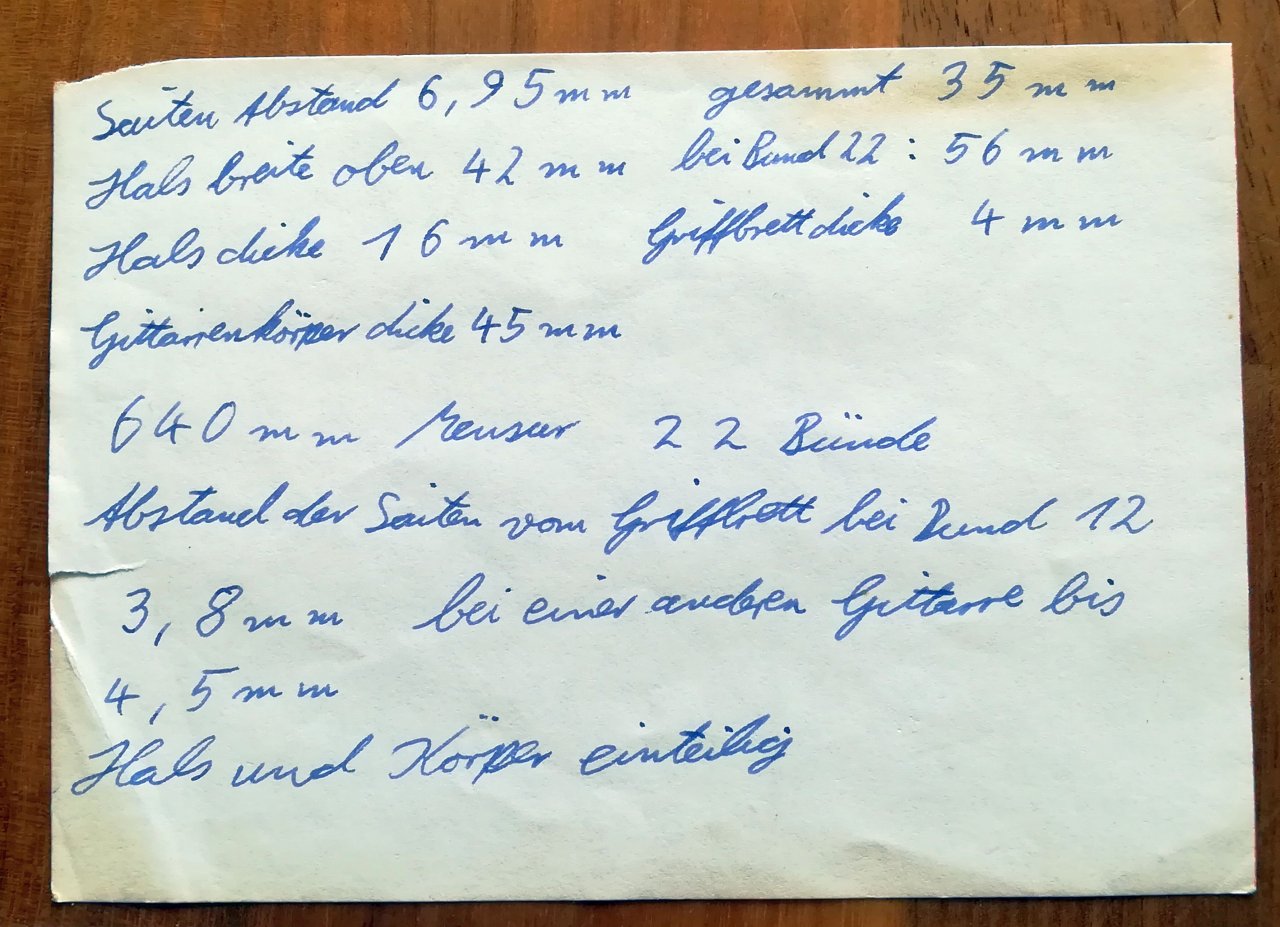 Saiten Abstand 6,95 mm gesammt 35 mm
Hals breite oben 42 mm bei Bund 22: 56 mm
Hals dicke 16 mm Griffbrett dicke 4 mm
Gittarrenkörper dicke 45 mm
640 mm Mensur 22 Bünde
Abstand der Saiten vom Griffbrett bei Bund 12
3,8 mm bei einer anderen Gittarre bis
4,5 mm
Hals und Körper einteilig